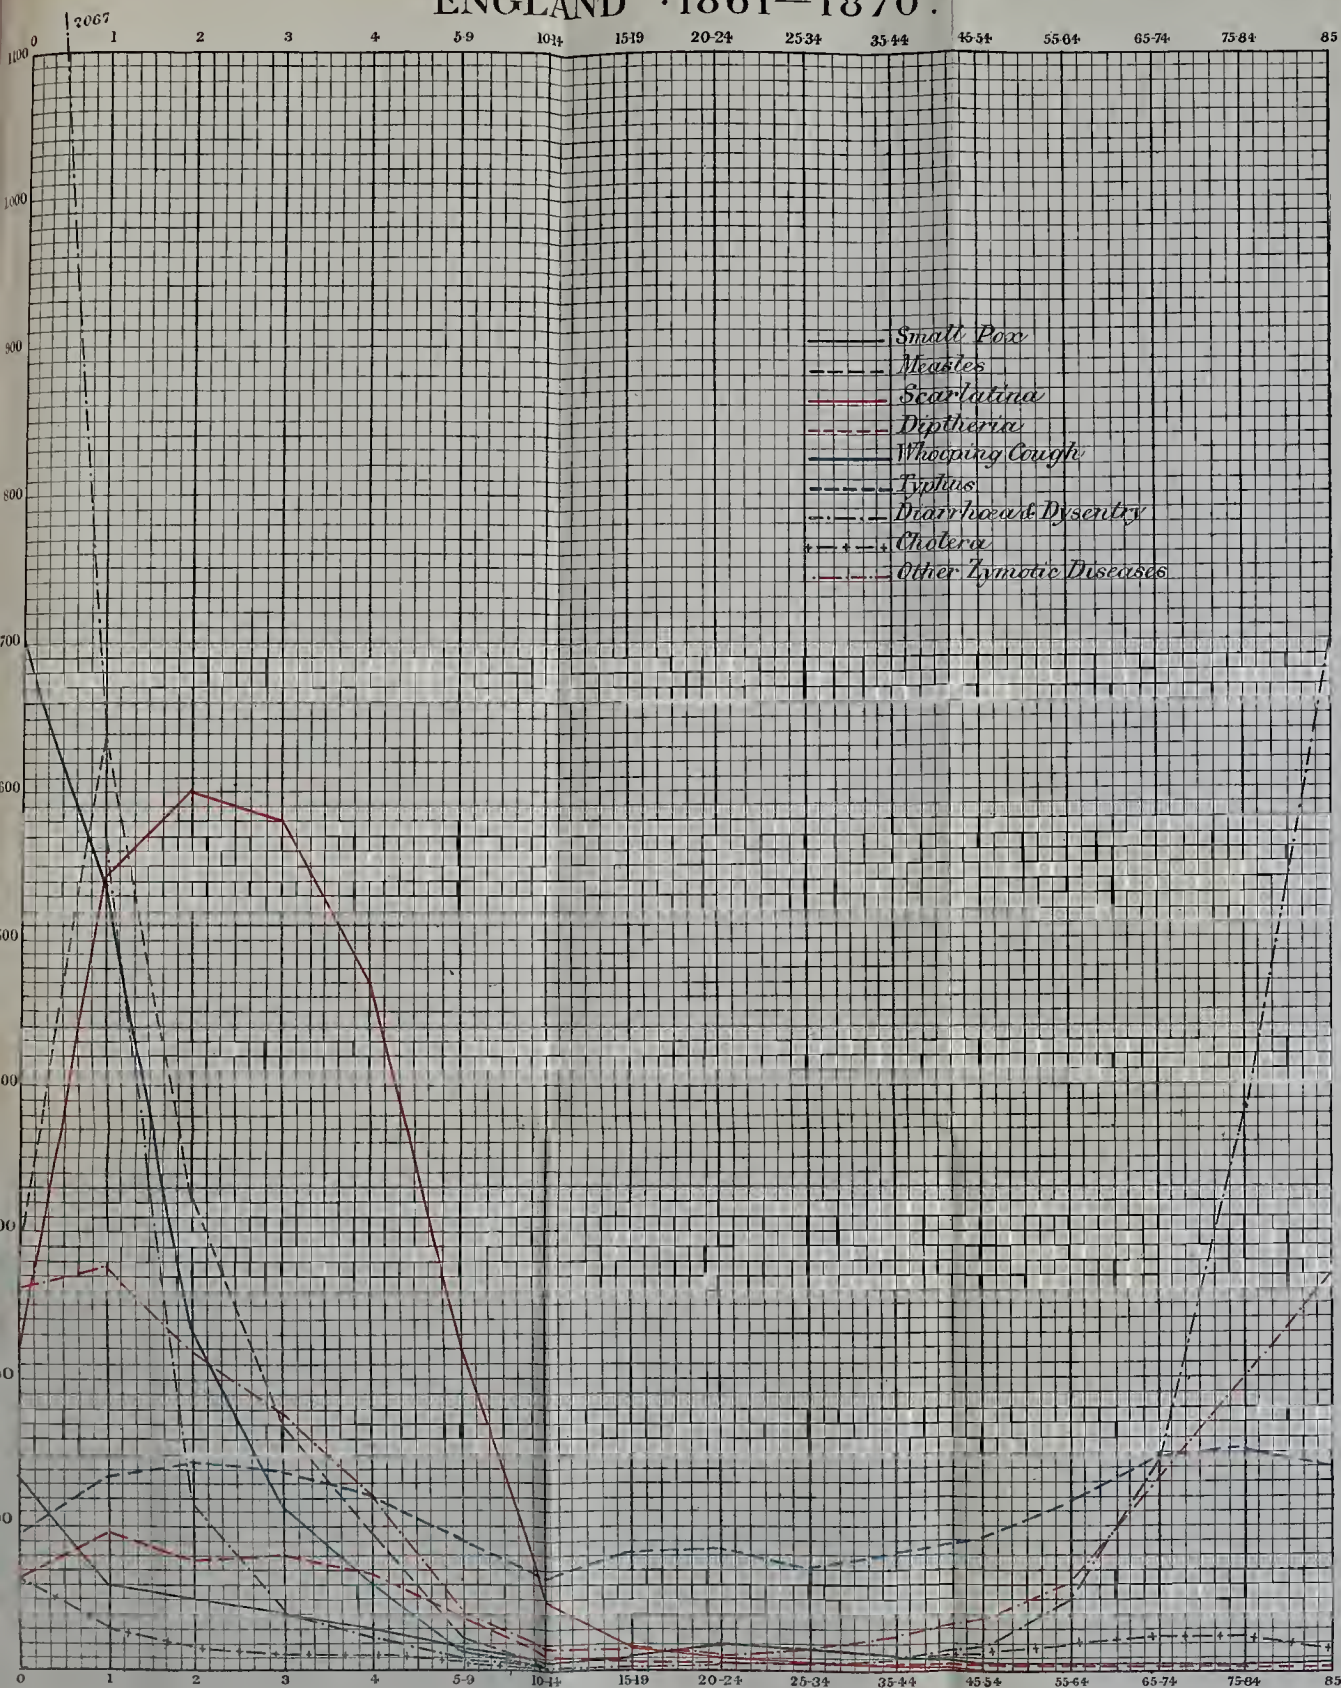 ENGLAND ·1861—1870.
2067
0 1 2 3 4 5-9 10-14 15-19 20-24 25-34 35-44 45-54 55-64 65-74 75-84 85
1100
1000
900
Small Pox
Measles
Scarlatina
Diptheria
Whooping Cough
800
Typhus
Diarrhœa & Dysentry
Cholera
Other Zymotic Diseases
700
600
00
00
00
0
0
0 1 2 3 4 5-9 10-14 15-19 20-24 25-34 35-44 45-54 55-64 65-74 75-84 85